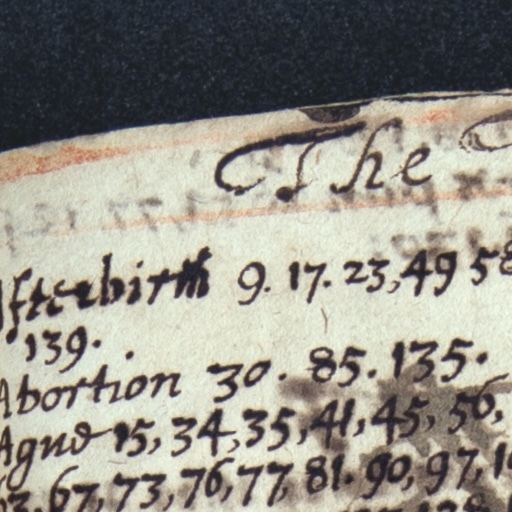 The
Afterbirth 9. 17. 23, 49 58
139.
Abortion 30. 85. 135.
Ague 15, 34, 35, 41, 45, 56,
63, 67, 73, 76, 77, 81. 90, 97,
138